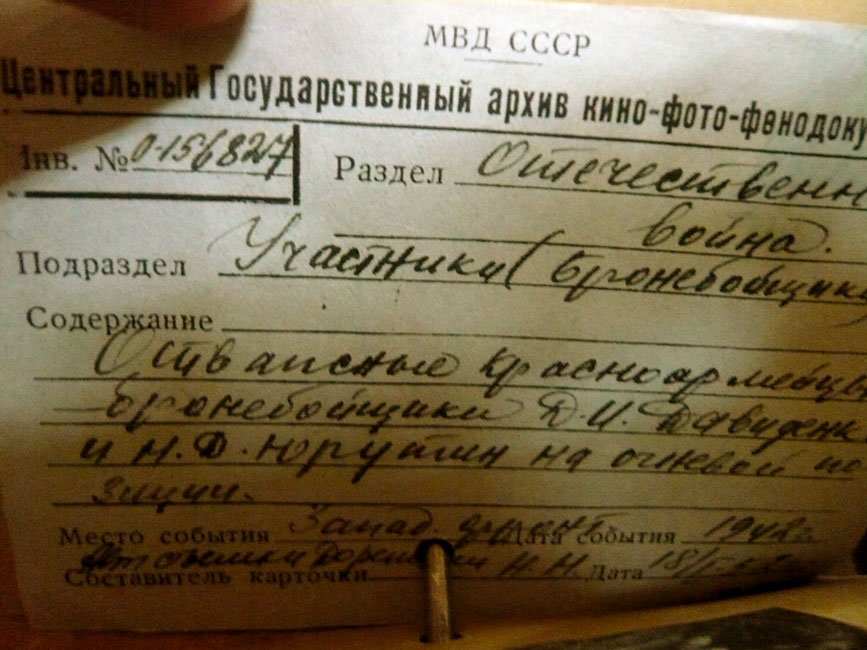 МВД СССР
Центральный Государственный архив кино-фото-фонодоку
Инв. № 0-156827 Раздел Отечественн
война.
Подраздел Участники (бронебойщик
Содержание
Отважные красноармейцы
-бронебойщики Д.И. Давиденк
и Н.Ф. Юрутин на огневой по
зиции.
Место события Запад. фронт Дата события 1942г.
Составитель карточки Н.Н. Дата